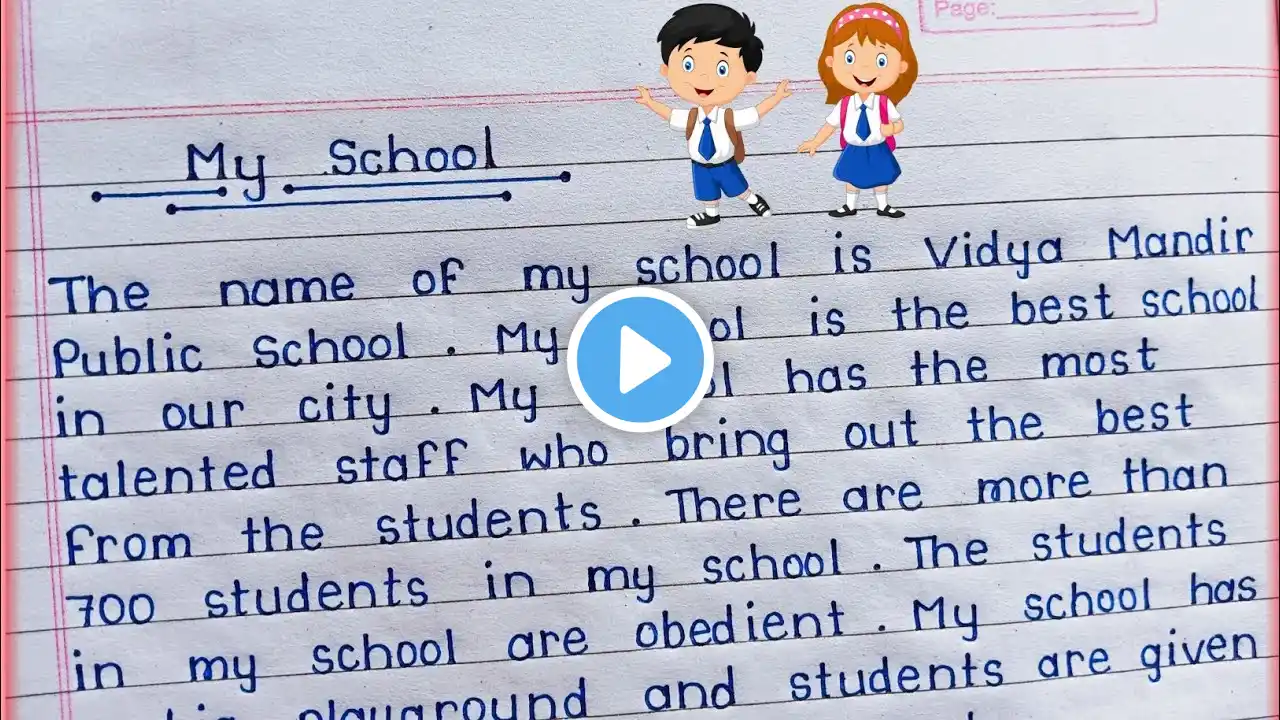 Page:
My School
The name of my school is Vidya Mandir
Public School . My ol is the best school
in our city . My l has the most
talented staff who bring out the best
from the students . There are more than
700 students in my school . The students
in my school are obedient . My school has
playground and students are given